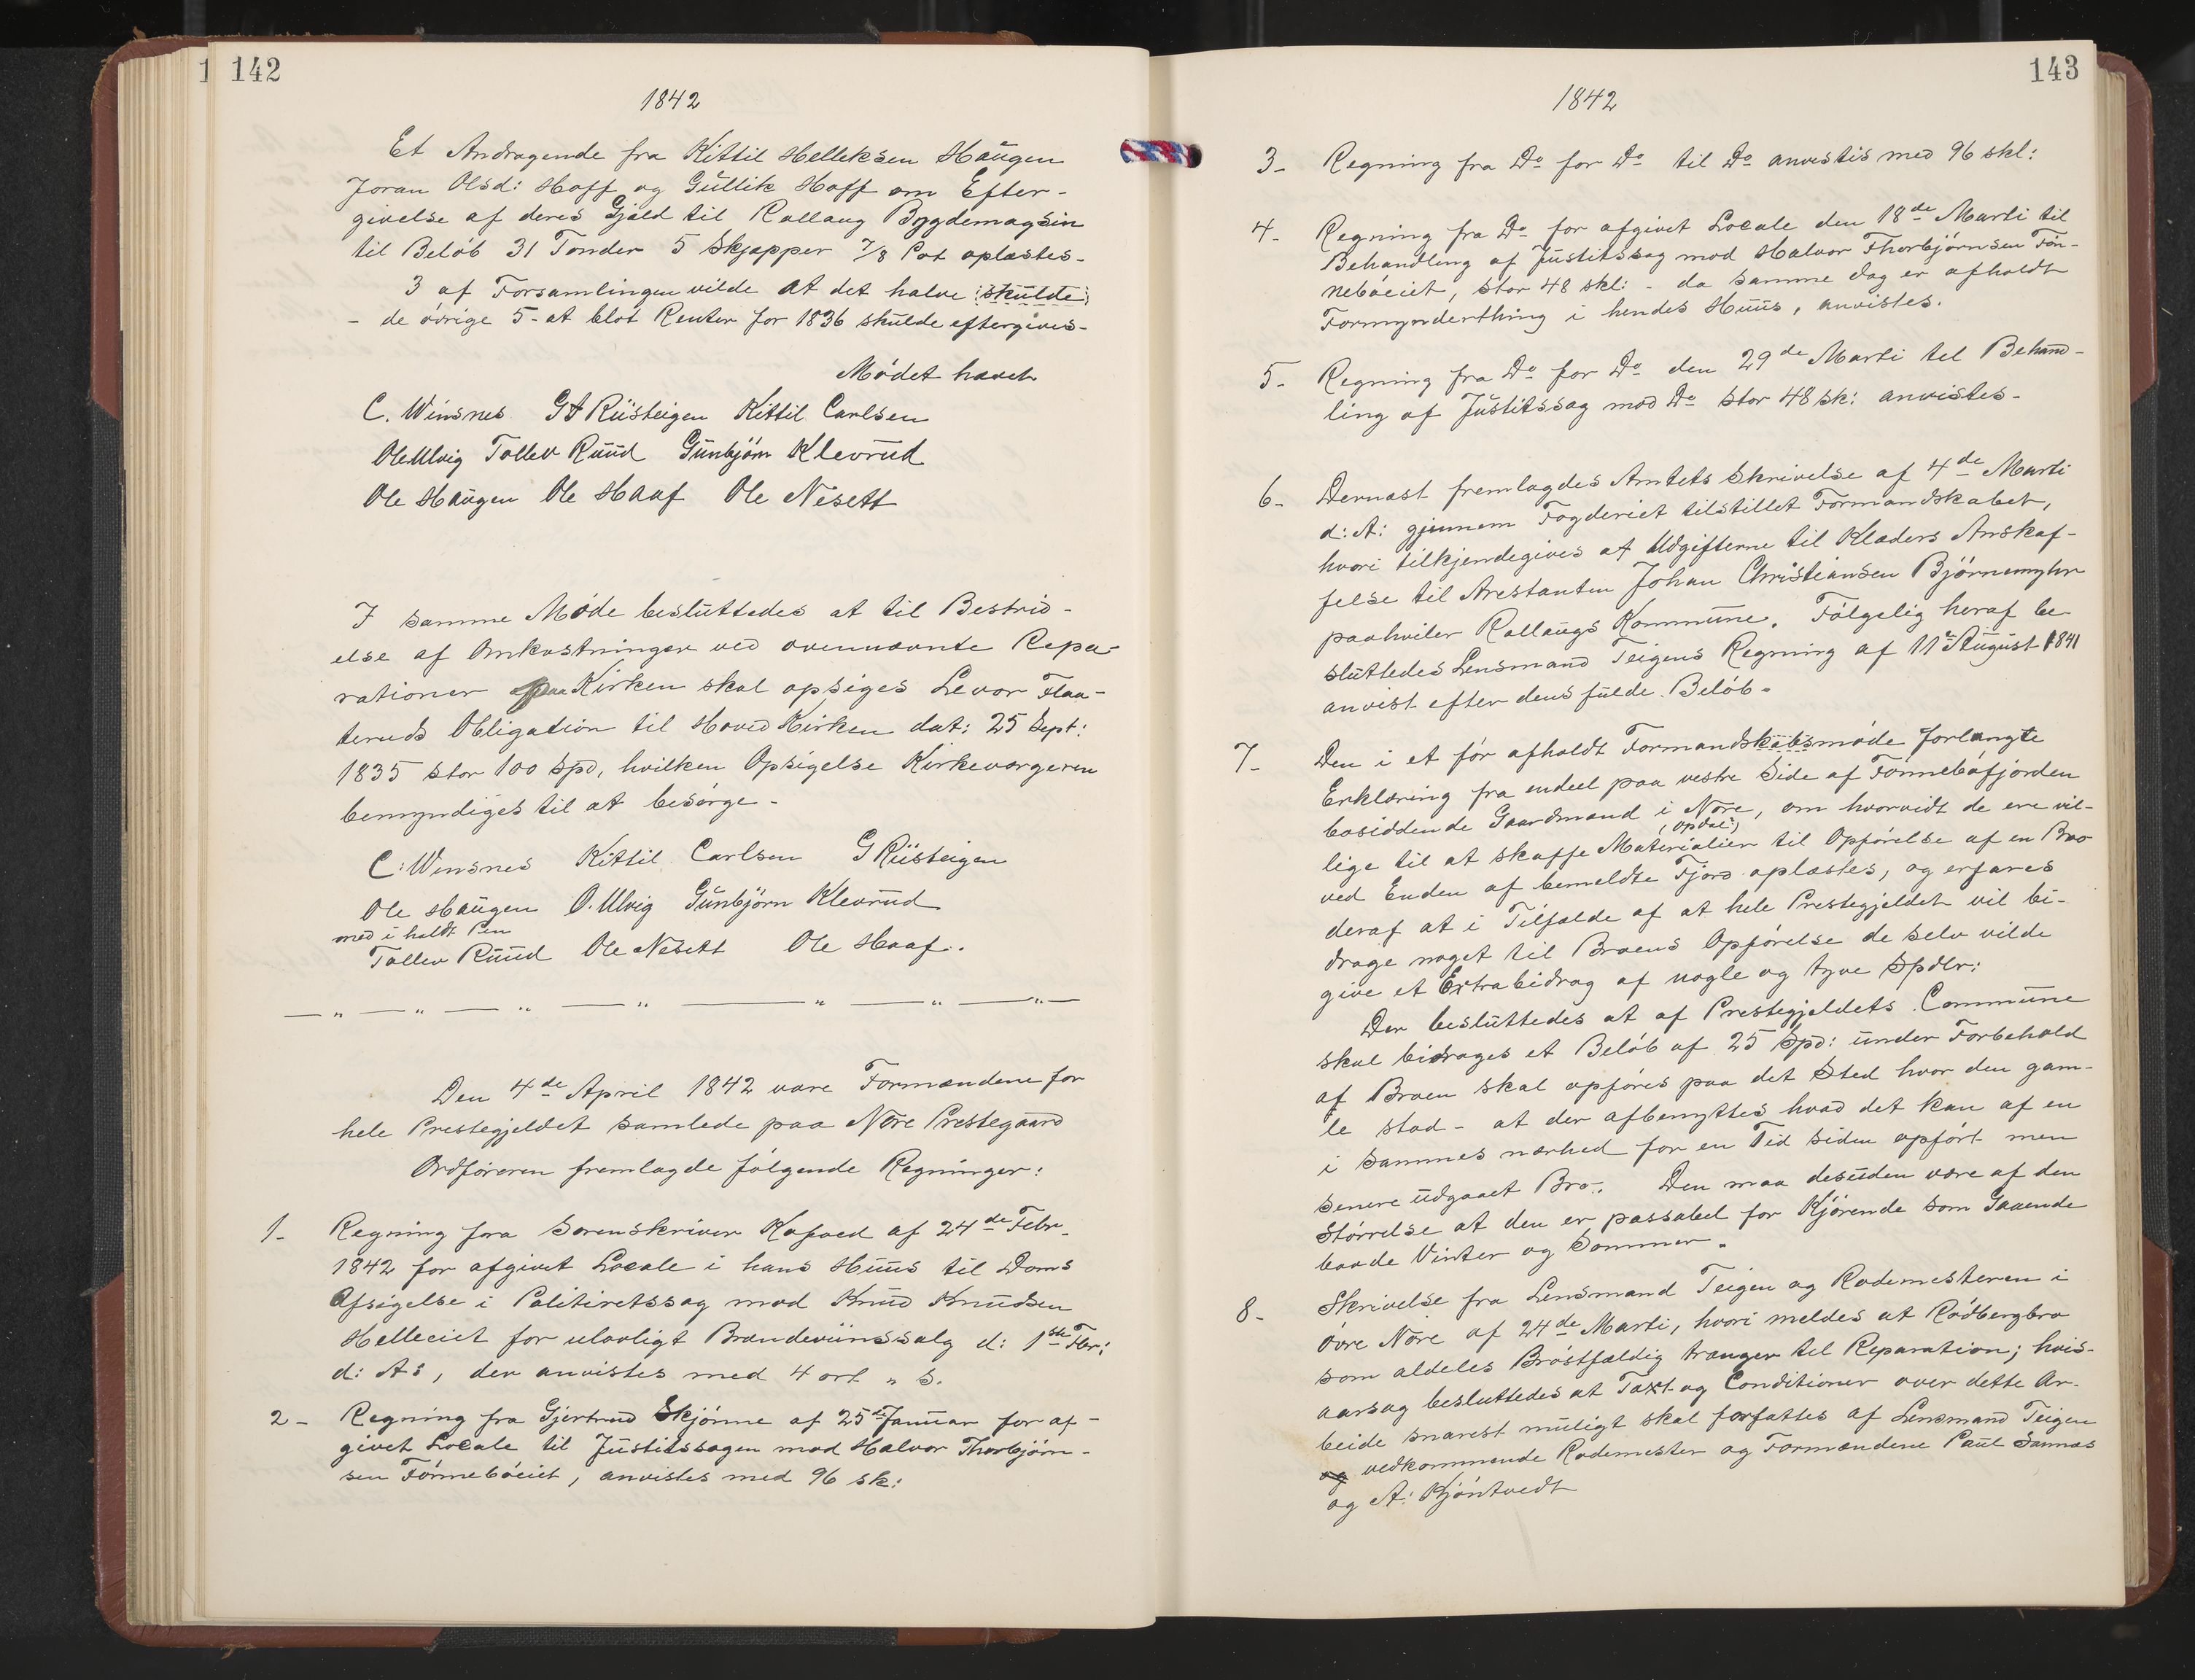 1 142
1842
Et Andragende fra Kittil Helleksen Haugen
Joran Olsd: Hoff og Gullik Hoff om Efter-
givelse af deres Gjæld til Rollaug Bygdemagsin
til Beløb 31 Tønder 5 Skjæpper 7/8 Pot oplæstes-
3 af Forsamlingen vilde at det halve (:skulde:)
- de øvrige 5- at blot Renter for 1836 skulde eftergives-
Mødet hævet
C. Winsnes GA Rüsteigen Kittil Carlsen
Ole Ulvig Tollev Ruud Gunbjörn Klevrud
Ole Haugen Ole Haaf Ole Nesett
I samme Møde besluttedes at til Bestrid-
else af Omkostninger ved ovennævnte Repa-
rationer paa Kirken skal opsiges Levor Flaa-
teruds Obligation til Hoved Kirken dat: 25 Sept:
1835 stor 100 Spd, hvilken Opsigelse Kirkeværgeren
bemyndiges til at besørge-
C: Winsnes Kittil Carlsen G Rüsteigen
Ole Haugen O. Ulvig Gunbjörn Klevrud
med i holdt Pen
Tollev Ruud Ole Nesett Ole Haaf.
Den 4de April 1842 vare Formændene for
hele Prestegjeldet samlede paa Nore Prestegaard
Ordføreren fremlagde følgende Regninger:
1- Regning fra Sorenskriver Kofoed af 24de Febr.
1842 for afgivet Locale i hans Huus til Doms
Afsigelse i Politiretssag mod Knud Knudsen
Helleeiet for ulovligt Brændeviinssalg d: 1ste Fbr:
d: As, der anvistes med 4 ort " s.
2- Regning fra Gjertrud Skjønne af 25de Januar for af-
givet Locale til Justitssagen mod Halvor Thorbjörn-
sen Fønnebøeiet, anvistes med 96 sk:
143
1842
3- Regning fra Do for Do til Do anvistis med 96 skl:
4- Regning fra Do for afgivet Locale den 18de Marti til
Behandling af Justitssag mod Halvor Thorbjørnsen Føn-
nebøeiet, stor 48 skl: - da samme Dag er afholdt
Formynderthing i hendes Huus, anvistes.
5- Regning fra Do for Do den 29de Marti til Behand-
ling af Justitssag mod Do stor 48 sk: anvistes-
6- Dernæst fremlagdes Amtets Skrivelse af 4de Marti
d: A: gjennem Fogderiet tilstillet Formandskabet,
hvori tilkjendegives at Udgifterne til Klæders Anskaf-
felse til Arestanten Johan Christiansen Bjørnemyhr
paahviler Rollaugs Kommune. Følgelig heraf be-
sluttedes Lensmand Teigens Regning af 11te August 1841
anvist efter dens fulde Beløb.
7- Den i et før afholdt Formandskabsmøde forlangte
Erklæring fra endeel paa vestre Side af Fønnebøfjorden
bosiddende Gaardmænd i Nore, om hvorvidt de ere vil-
(Opdal:)
lige til at skaffe Materialier til Opførelse af en Bro
ved Enden af bemeldte Fjord oplæstes, og erfares
deraf at i Tilfælde af at hele Prestegjeldet vil bi-
drage noget til Broens Opførelse de selv vilde
give et Extrabidrag af nogle og tyve Spdlr:
Der besluttedes at af Prestegjeldets Commune
skal bidrages et Beløb af 25 Spd: under Forbehold
af Broen skal opføres paa det Sted hvor den gam-
le stod - at der afbenyttes hvad det kan af en
i sammes nærhed for en Tid siden opført men
senere udgaaet Bro. Den maa desuden være af den
Størrelse at den er passabel for Kjørende som Gaaende
baade Vinter og Sommer.
8- Skrivelse fra Lensmand Teigen og Rodemesteren i
øvre Nore af 24de Marti, hvori meldes at Rødbergbro
som aldeles Brøstfældig trænger til Reparation; hvis-
aarsag besluttedes at Taxt og Conditioner over dette Ar-
beide snarest muligt skal forfattes af Lensmand Teigen
og vedkommende Rodemester og Formændene Paul Sannæs
og A: Kjøntvedt